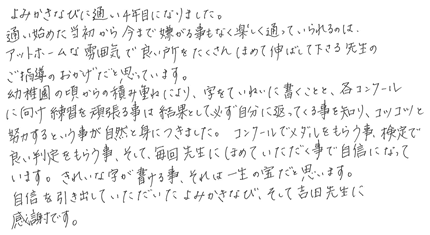 よみかきなびに通い4年目になりました。
通い始めた当初から今まで嫌がる事もなく楽しく通っていられるのは、
アットホームな雰囲気で良い所をたくさんほめて伸ばして下さる先生の
ご指導のおかげだと思っています。
幼稚園の頃からの積み重ねにより、字をていねいに書くことと、各コンクール
に向け練習を頑張る事は結果として必ず自分に返ってくる事を知り、コツコツと
努力するという事が自然と身につきました。コンクールでメダルをもらう事、検定で
良い判定をもらう事、そして、毎回先生にほめていただく事で自信になって
います。きれいな字が書ける事、それは一生の宝だと思います。
自信を引き出していただいたよみかきなび、そして吉田先生に
感謝です。